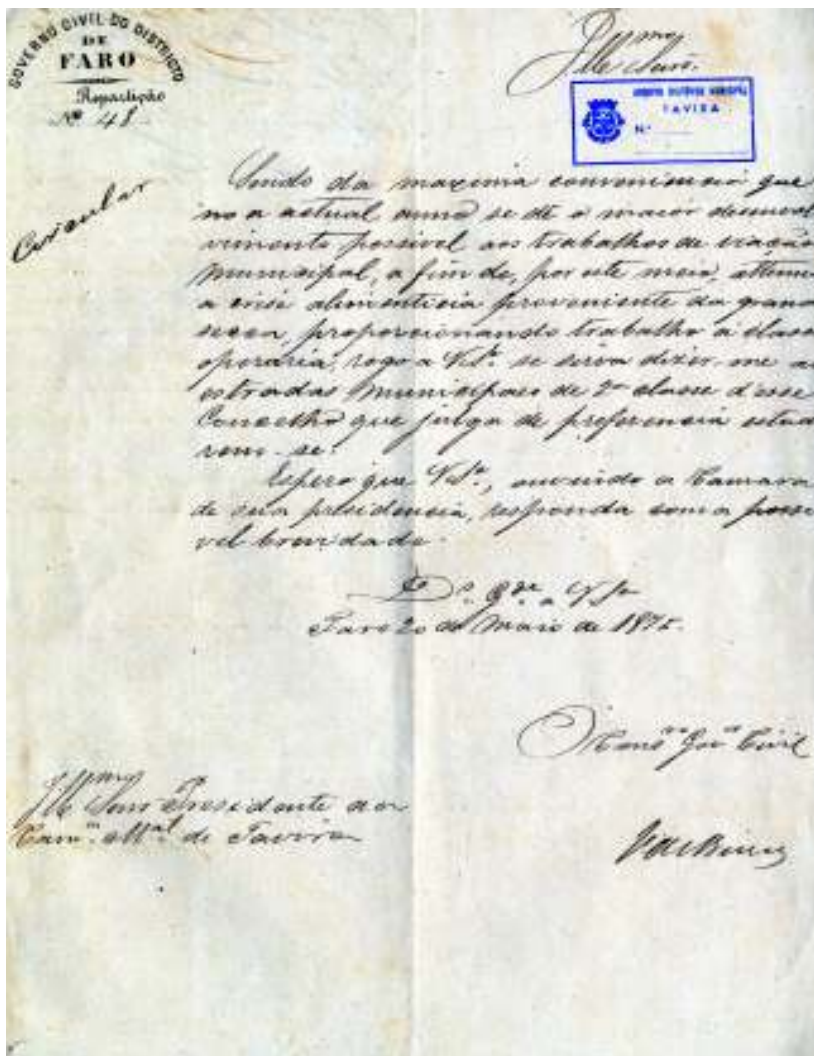 GOVERNO CIVIL DO DISTRICTO
DE
FARO
Repartição
Nº 48
Illmo Senr.
TAVIRA
N.º
Circular
Sendo da maxima conveniencia que
no a actual anno se dê o maior desenvol
vimento possivel aos trabalhos de viação
municipal, a fim de, por este meio, attenu
a crise alimenticia proveniente da grand
secca, proporcionando trabalho á class
operaria, rogo a V.Sª se sirva dizer-me as
estradas municipaes de 2ª classe d'esse
Concelho que julga de preferencia estud
rem-se.
Espero que V.Sª, ouvindo a Camara
de sua presidencia, responda com a possi
vel brevidade.
Ds. Gde a V.Sª
Faro 20 de Maio de 1875.
O Consº Govor Civil
Illmo Senr Presidente da
Camª Mal de Tavira